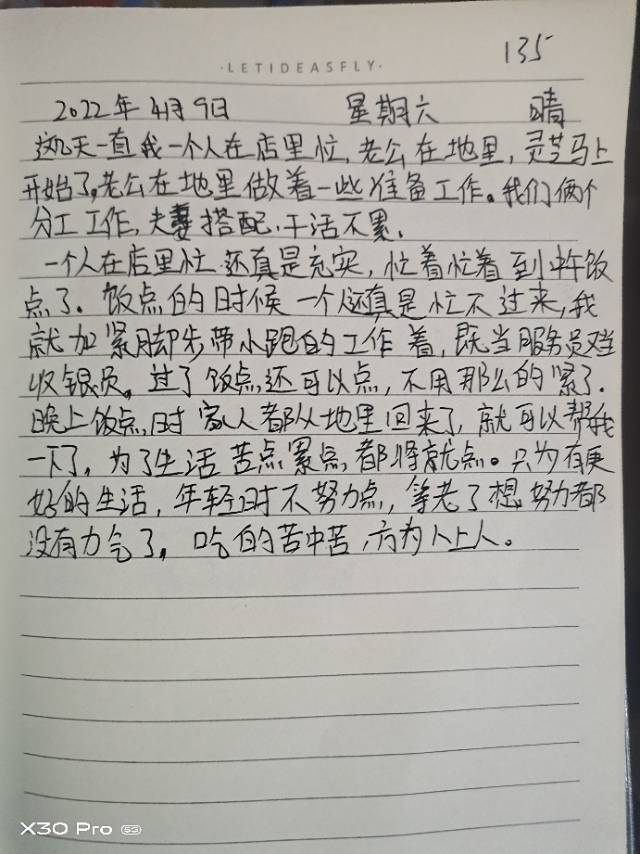 135
·LETIDEASFLY·
2022年4月9日 星期六 晴
这几天一直我一个人在店里忙,老公在地里,灵芝马上
开始了,老公在地里做着一些准备工作。我们俩个
分工工作,夫妻搭配,干活不累.
一个人在店里忙还真是充实,忙着忙着到中午饭
点了.饭点的时候一个人还真是忙不过来,我
就加紧脚步带小跑的工作着,既当服务员又当
收银员。过了饭点还可以点,不用那么的紧了.
晚上饭点时家人都从地里回来了,就可以帮我
一下了,为了生活苦点累点都将就点。只为有更
好的生活,年轻时不努力点,等老了想努力都
没有力气了,吃的苦中苦,方为人上人。
X30 Pro 5G